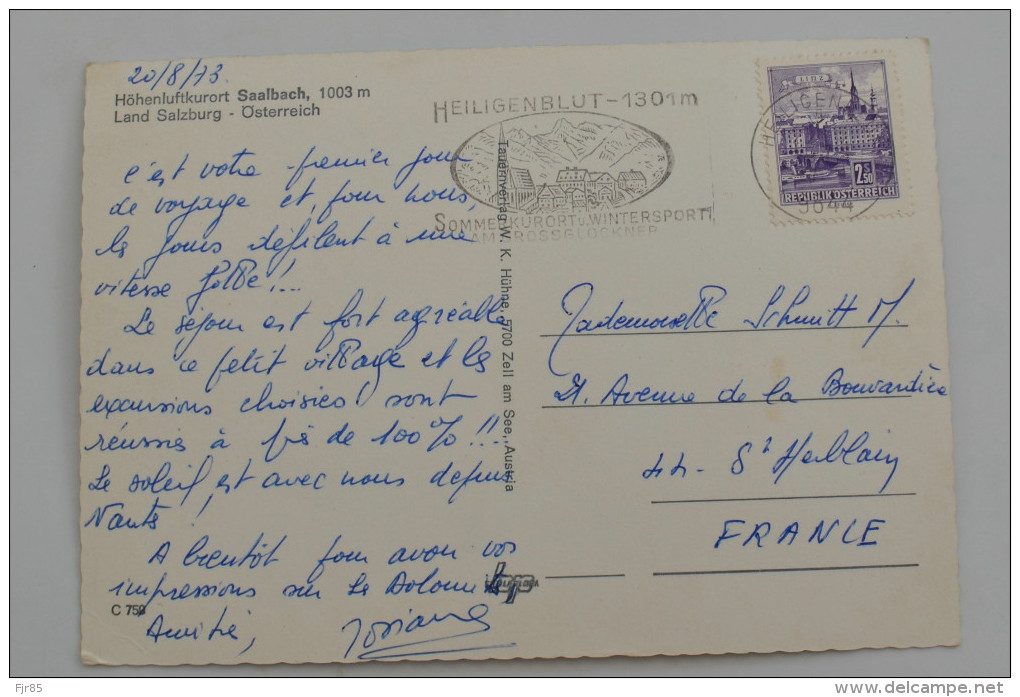 20/8/73
Höhenluftkurort Saalbach, 1003 m
Land Salzburg - Österreich
c'est votre premier jour
de voyage et, pour nous,
les jours défilent à une
vitesse folle !...
Le séjour est fort agréable
dans ce petit village et les
excursions choisies sont
réussies à plus de 100% !!!
Le soleil est avec nous depuis
Nantes !
A bientôt pour avoir vos
impressions sur les Dolomites
Amitié,
Josiane
C 759
Tauernverlag W. K. Hühne, 5700 Zell am See, Austria
HEILIGENBLUT - 1301 m
SOMMERKURORT U. WINTERSPORT
AM GROSSGLOCKNER
HEILIGEN
9844
LINZ
2.50 S
REPUBLIK ÖSTERREICH
Mademoiselle Schmitt M.
21. Avenue de la Bouvardière
44 - St Herblain
FRANCE
Fjr85
www.delcampe.net